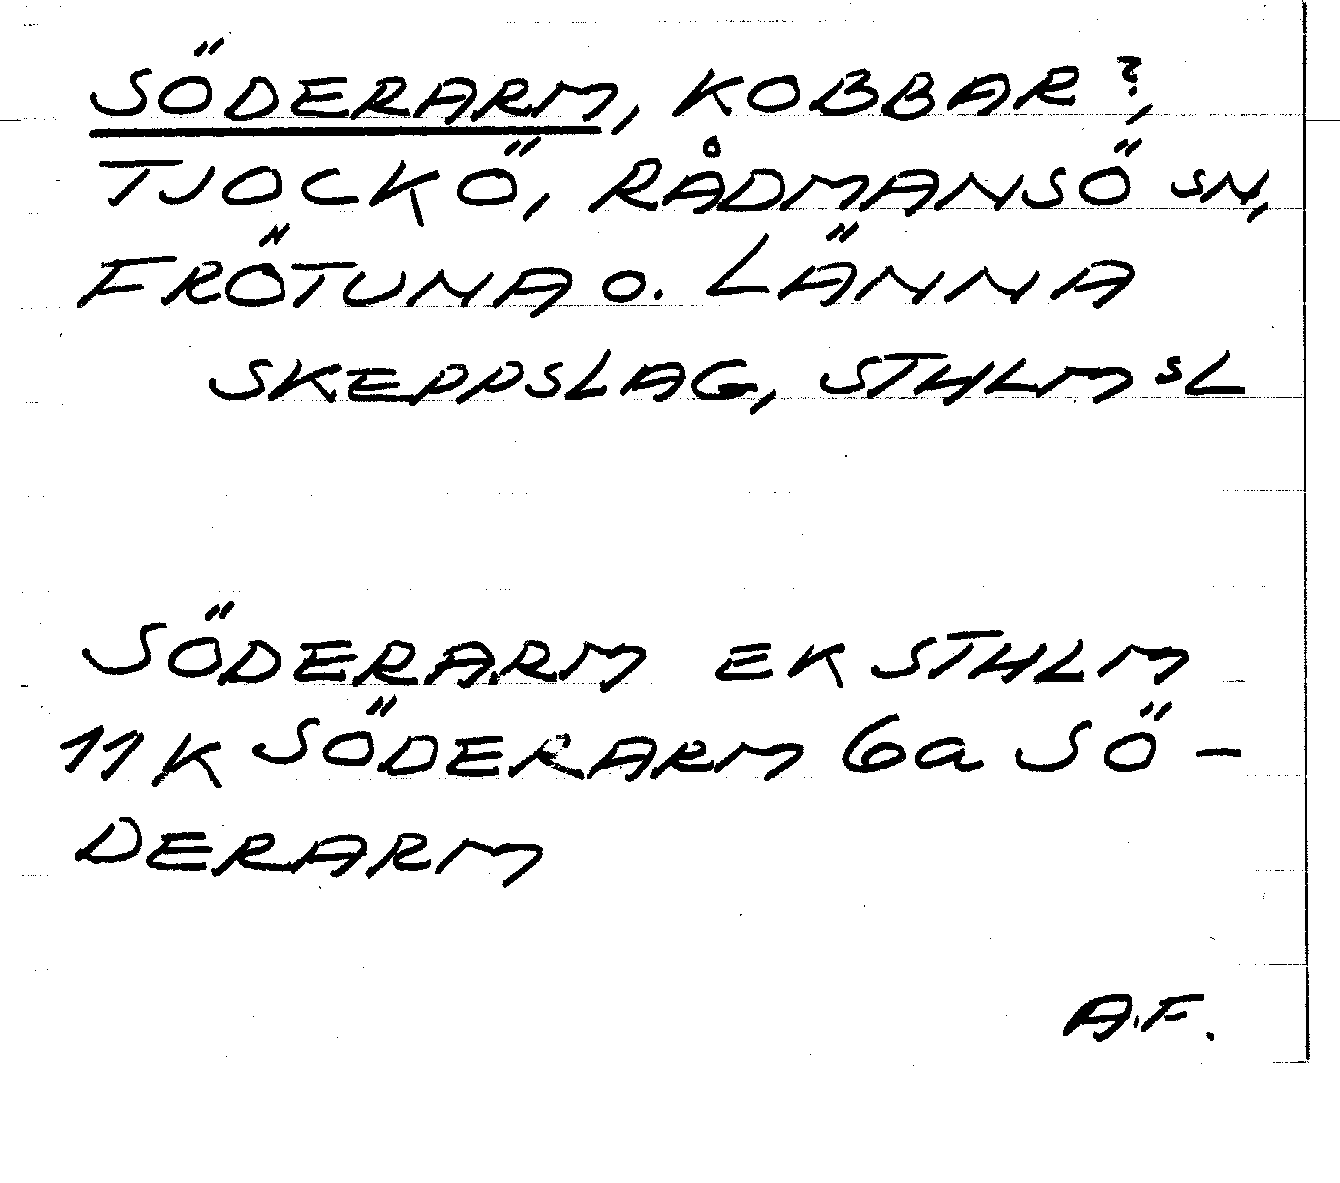 SÖDERARM, KOBBAR?,
TJOCKÖ, RÅDMANSÖ SN,
FRÖTUNA O. LÄNNA
SKEPPSLAG, STHLMSL
SÖDERARM EK STHLM
11K SÖDERARM 6a SÖ-
DERARM
A.F.